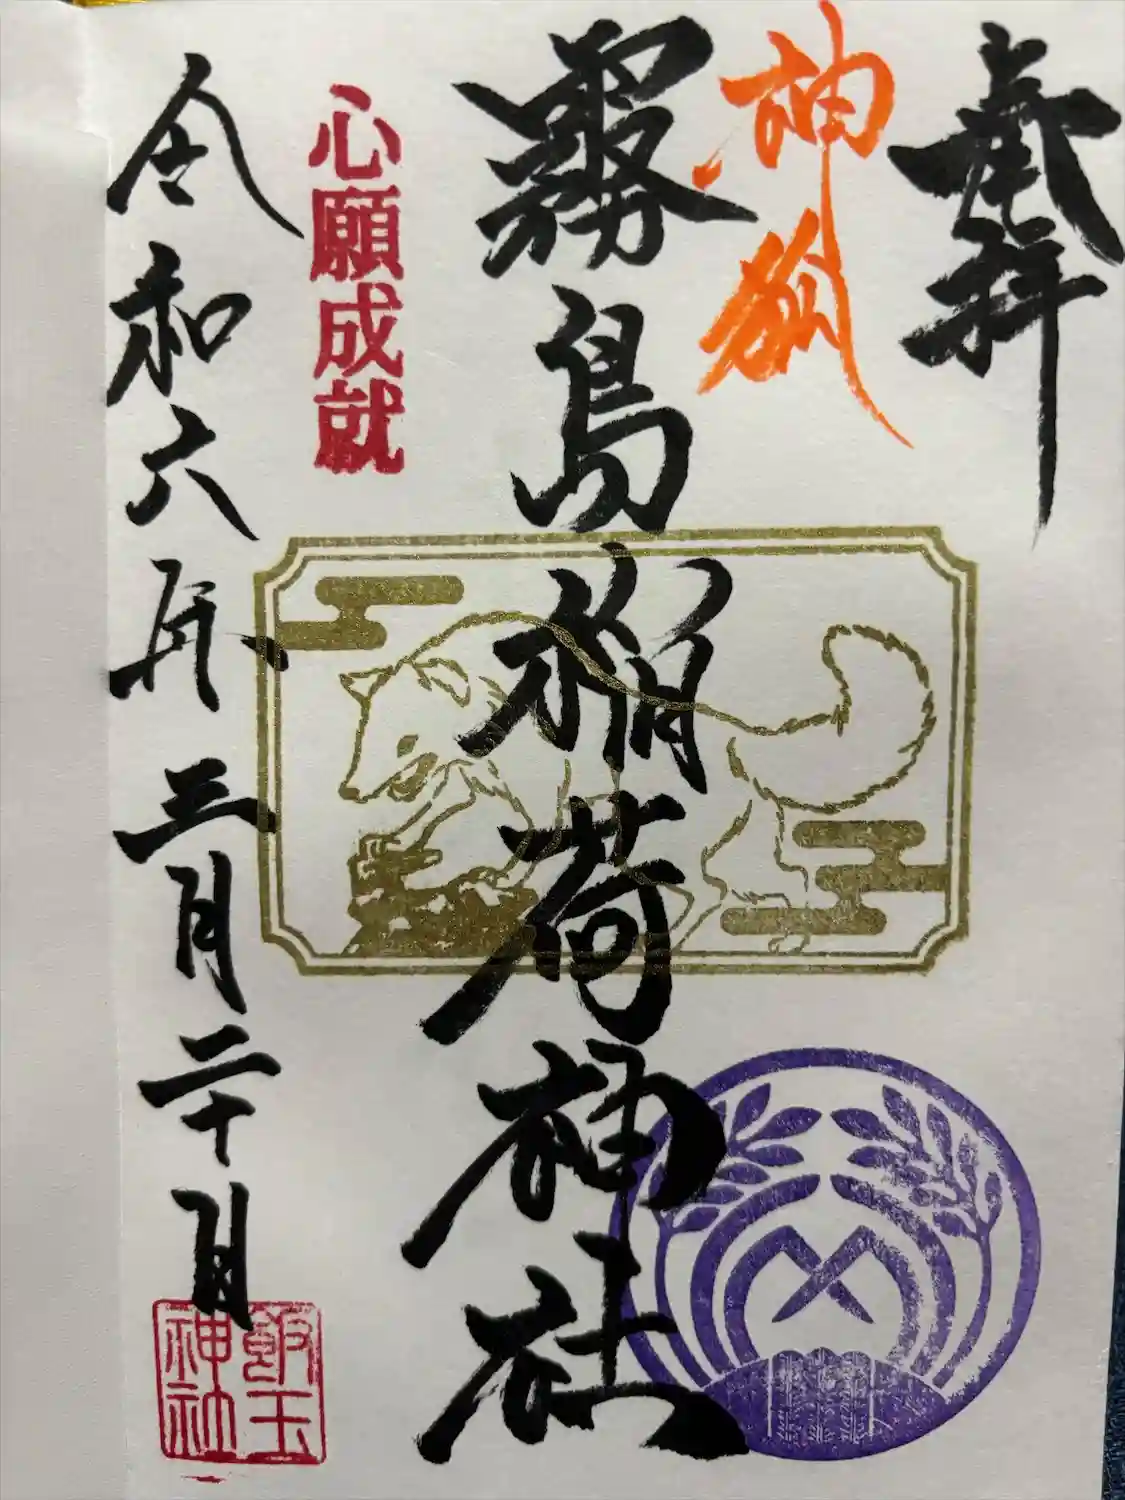 奉拝
神狐
霧島稲荷神社
心願成就
令和六年三月二十日
飯玉
神社